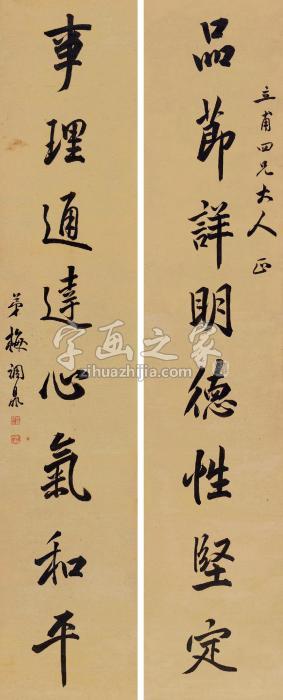 立甫四兄大人正
品節詳明德性堅定
事理通達心氣和平
弟梅調鼎
字画之家
zihuazhijia.com